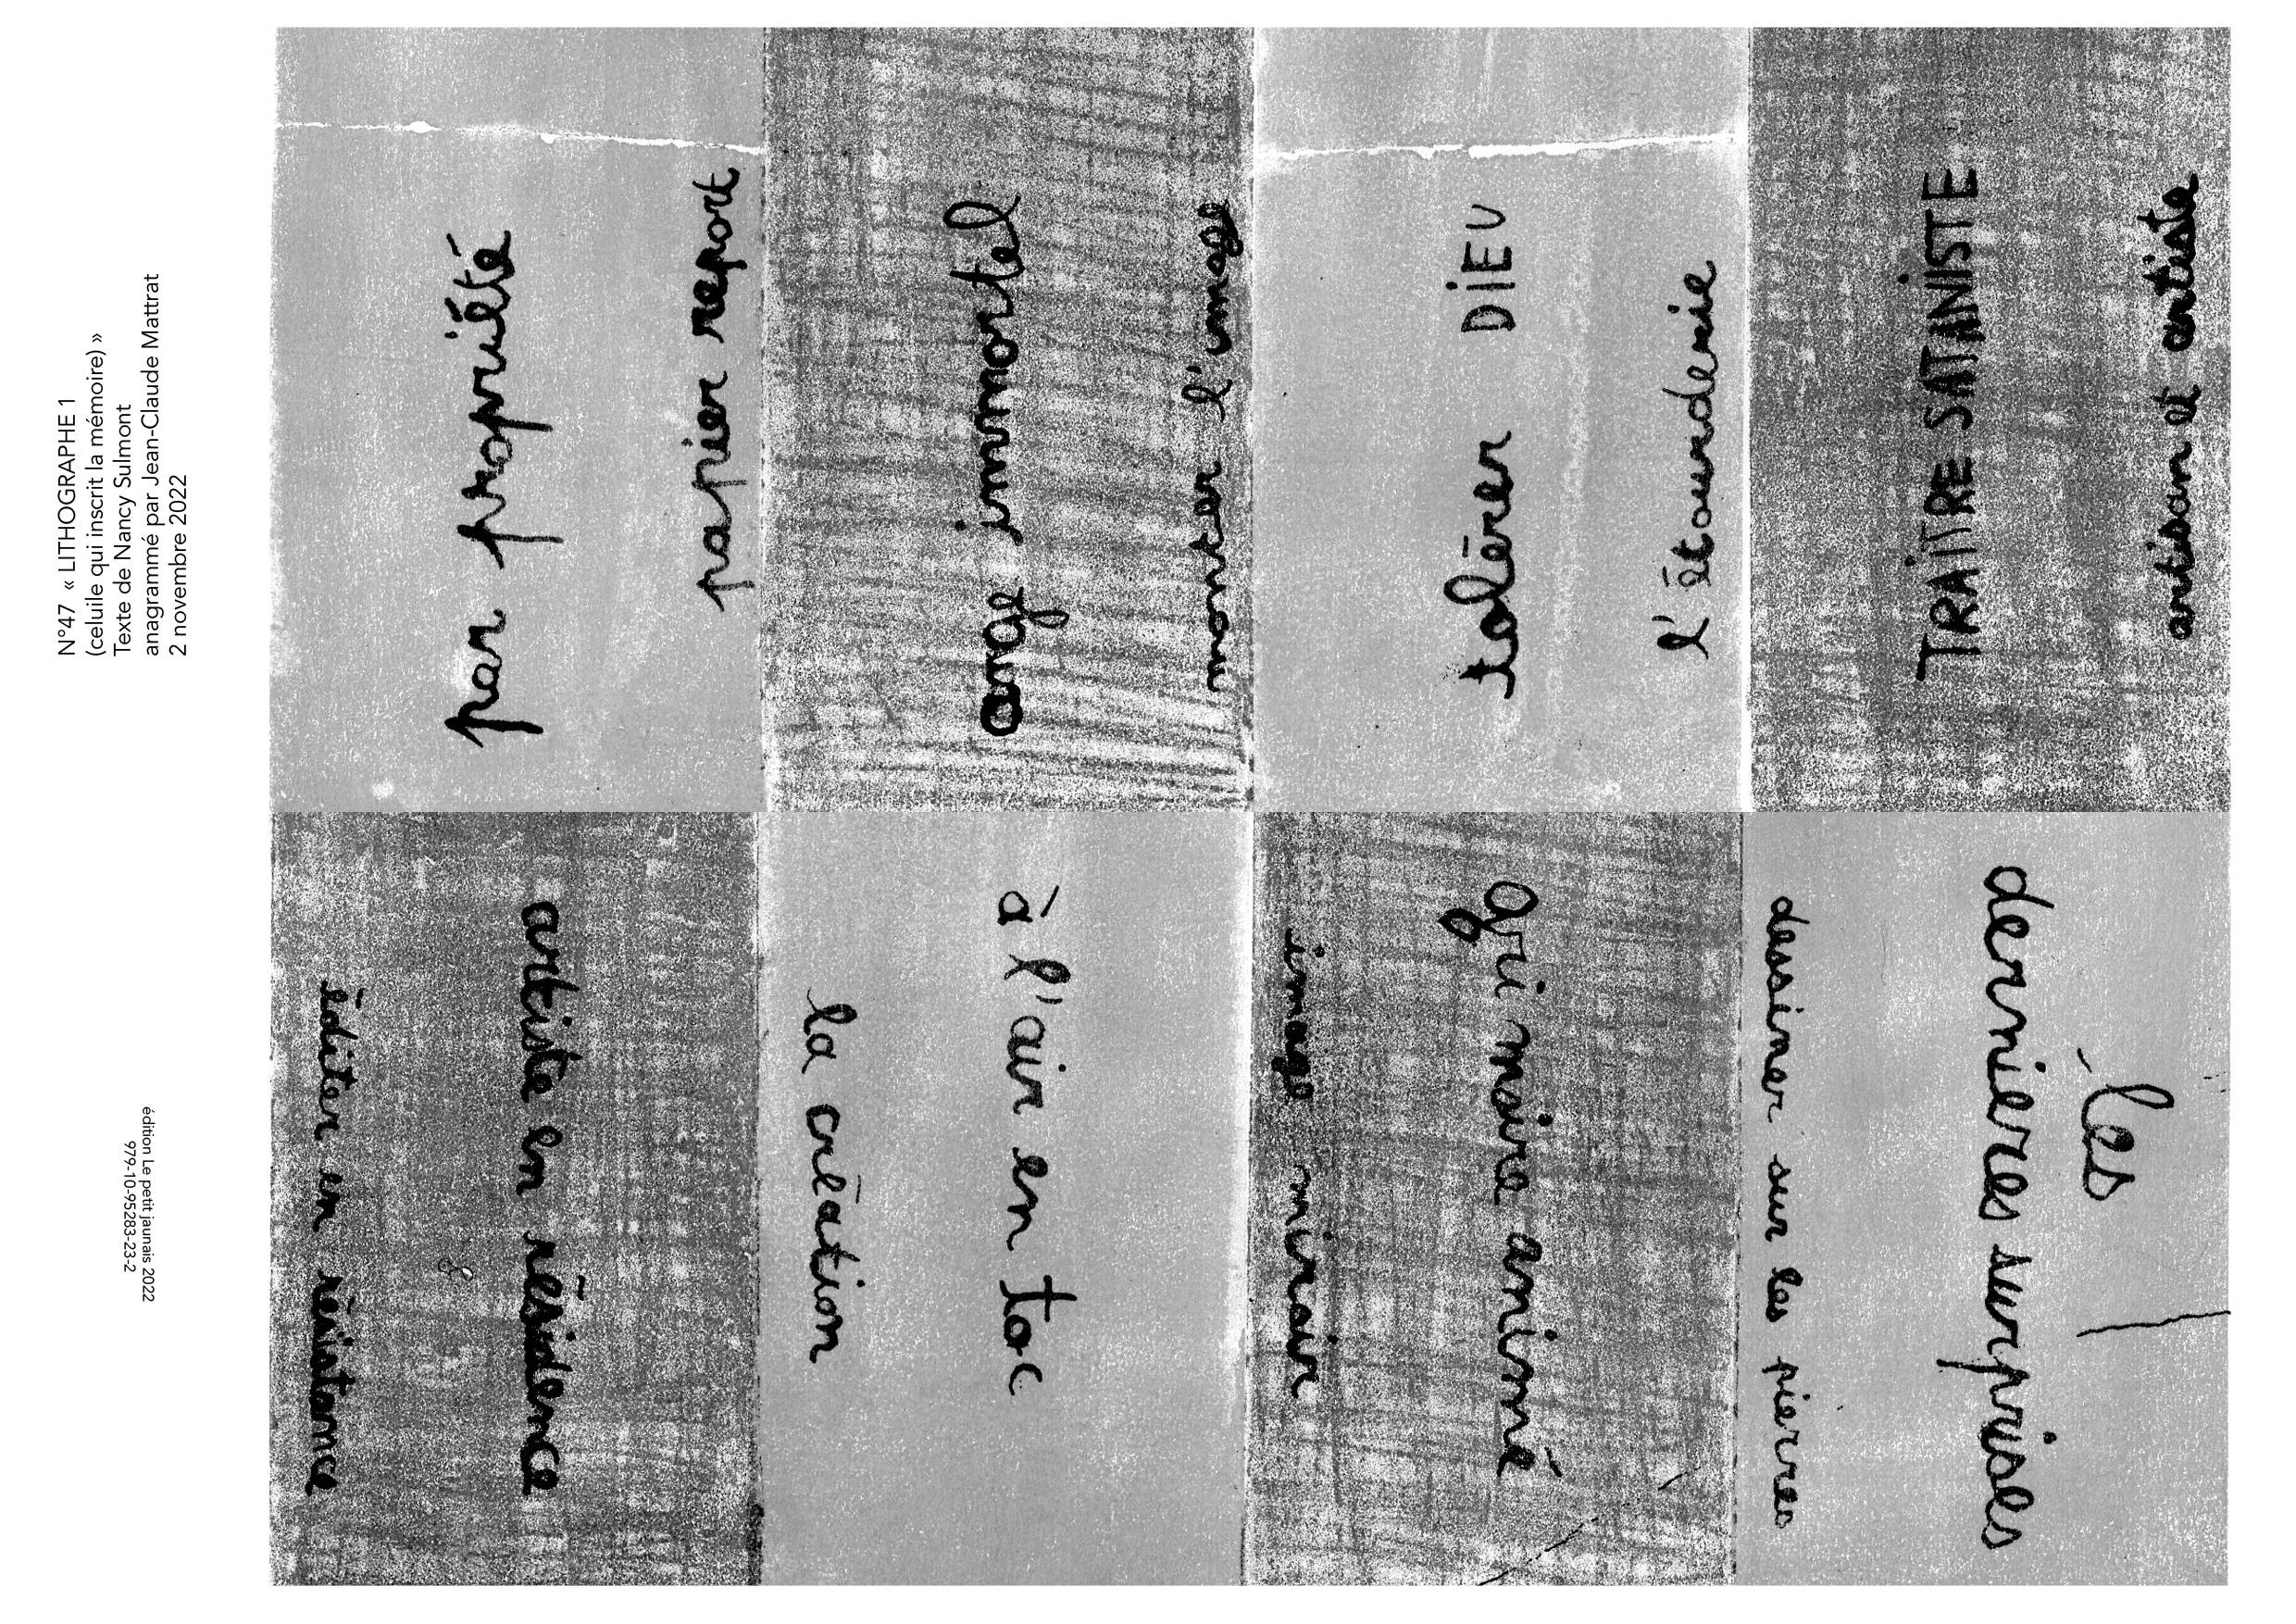 N°47 « LITHOGRAPHE 1
(celuile qui inscrit la mémoire) »
Texte de Nancy Sulmont
anagrammé par Jean-Claude Mattrat
2 novembre 2022
par propriété
papier report
ange immortel
montrer l'image
tolérer DIEU
l'étourderie
TRAITRE SATANISTE
artisan et artiste
les
dernieres surprises
dessiner sur les pierres
Gri moire animé
image miroir
à l'air en toc
la création
artiste en résidence
éditer en résistance
édition Le petit jaunais 2022
979-10-95283-23-2